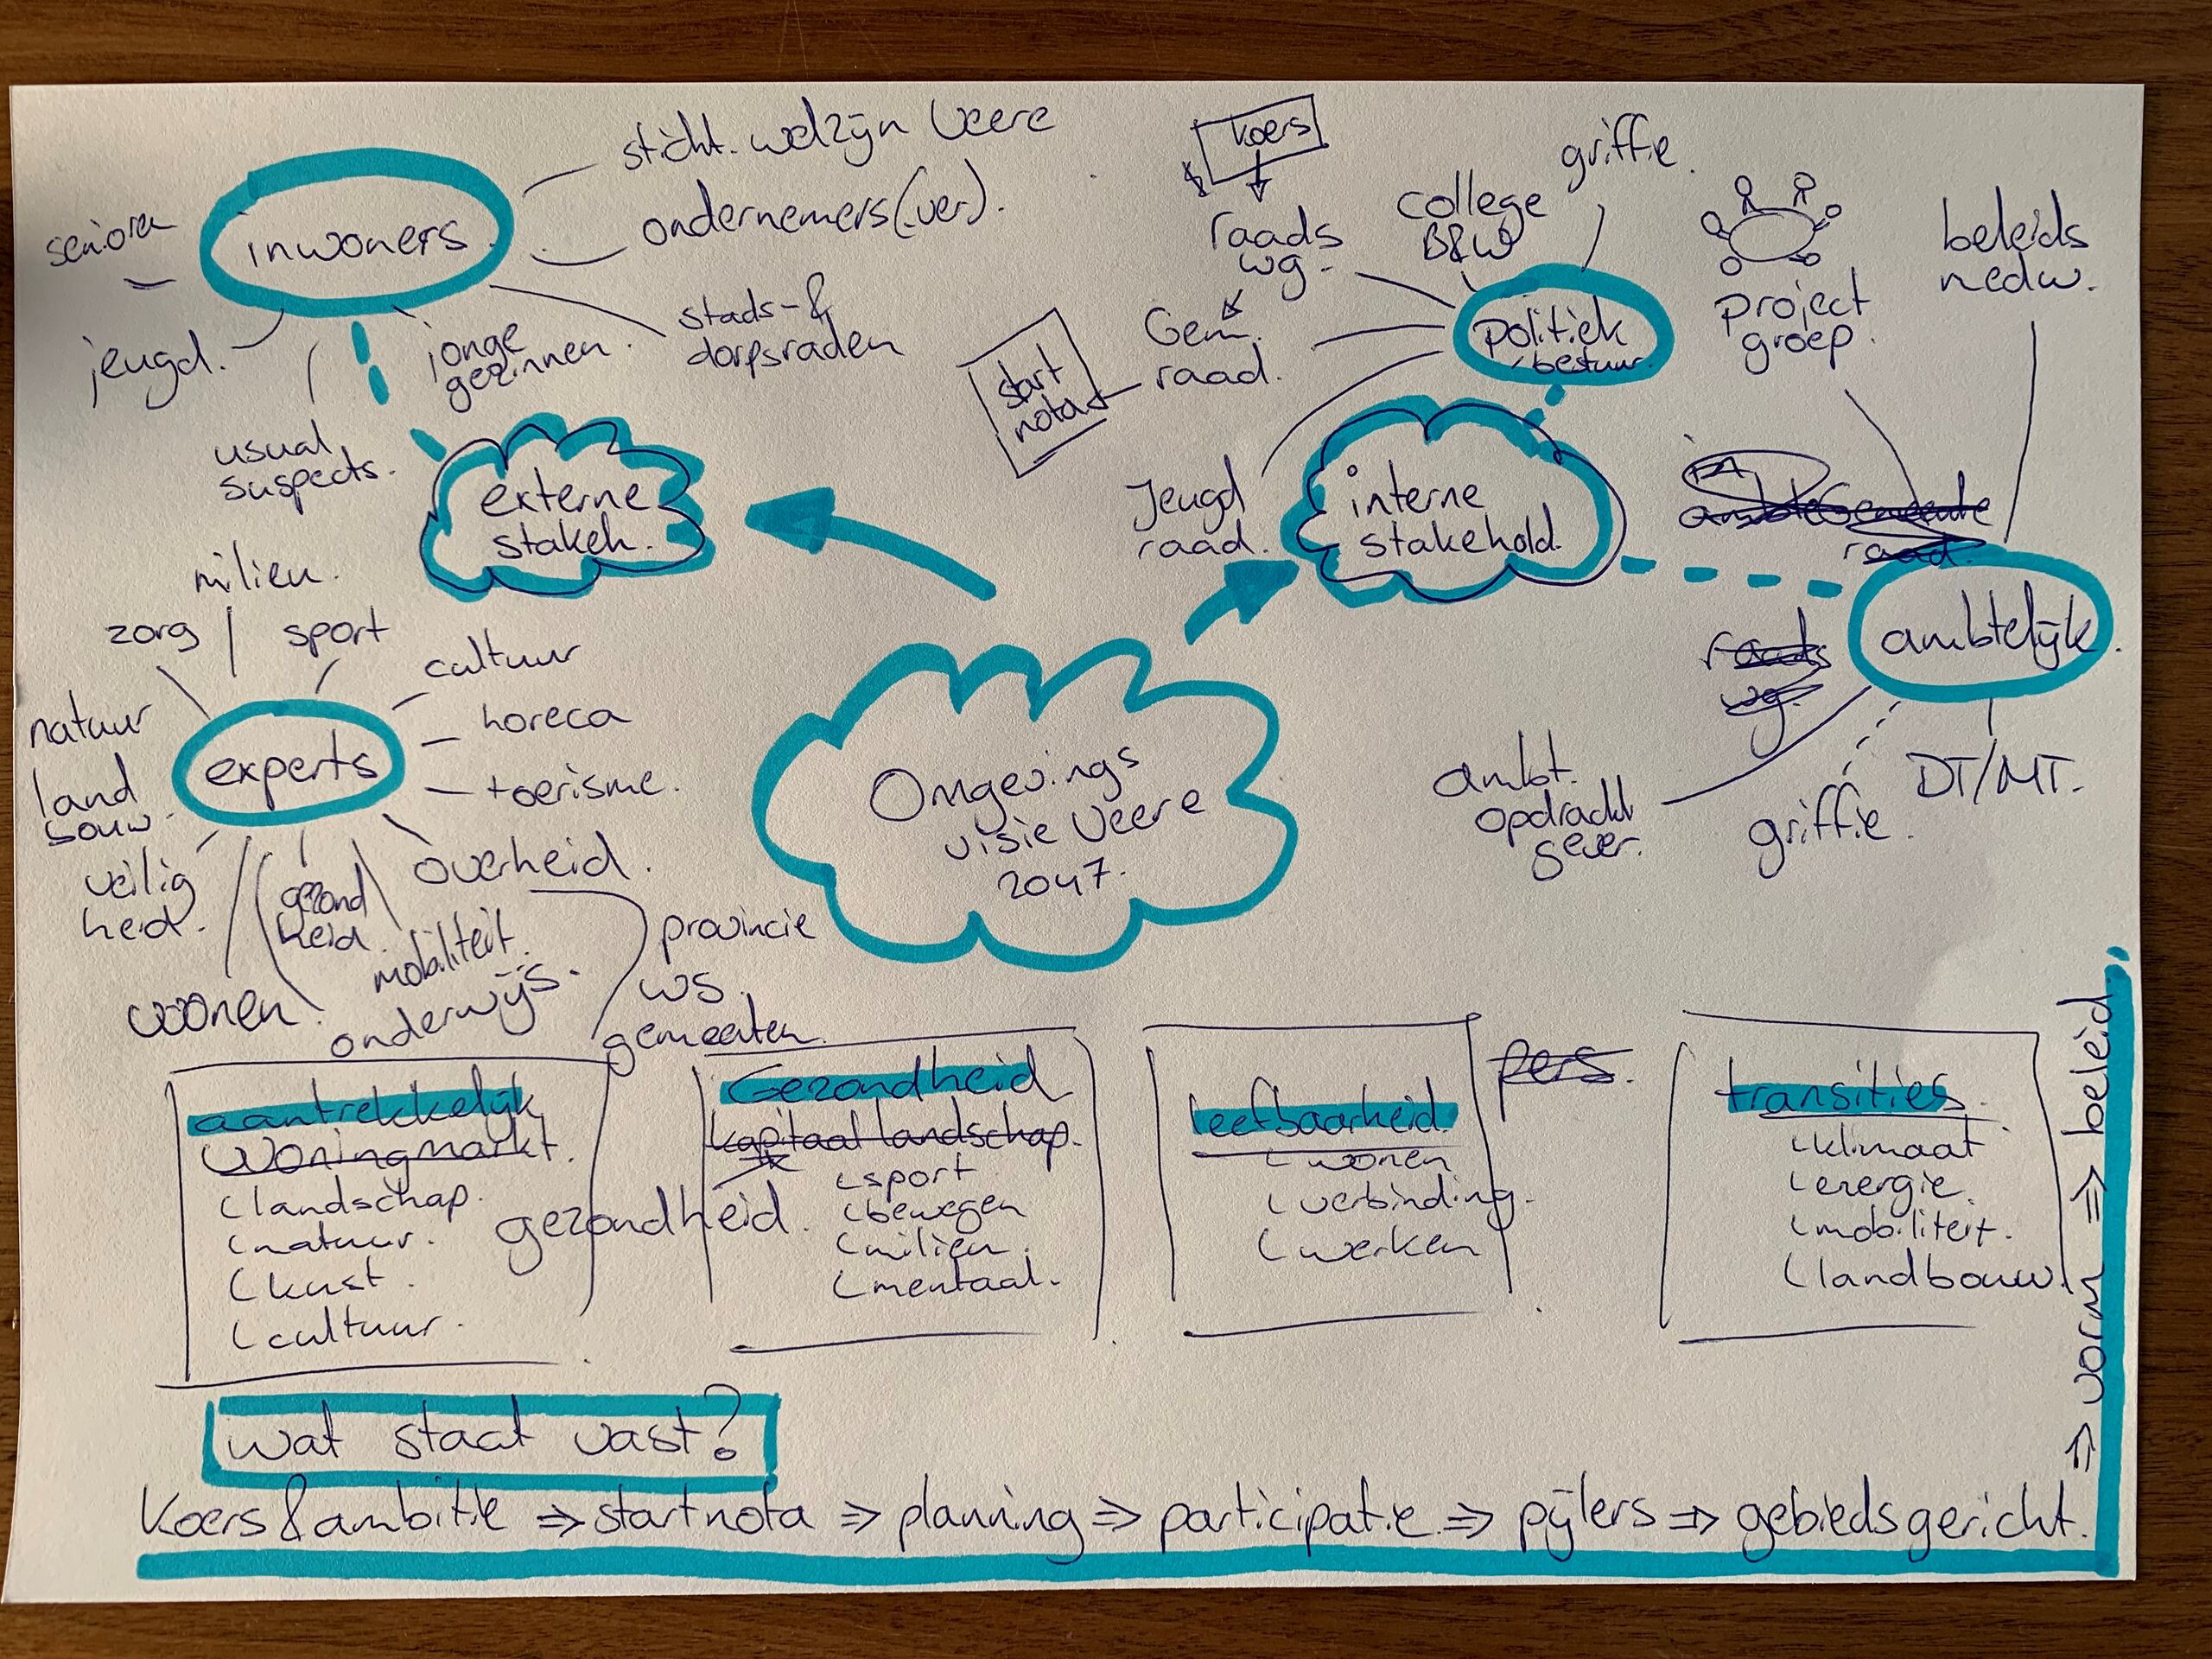 senioren
inwoners
sticht. welzijn Veere
ondernemers(ver).
stads- &
dorpsraden
jonge
gezinnen.
jeugd.
usual
suspects.
externe
stakeh.
koers
raads
wg.
Gem.
raad.
start
nota
Jeugd
raad.
college
B&W
griffie.
politiek
/bestuur.
project
groep.
beleids
medw.
interne
stakehold.
Gemeente
raad.
ambtelijk.
raads
wg.
ambt.
opdracht
gever.
griffie.
DT/MT.
milieu.
zorg
sport
cultuur
horeca
toerisme.
natuur
land
bouw.
experts
veilig
heid.
gezond
heid.
overheid.
mobiliteit.
onderwijs.
woonen.
provincie
WS.
gemeenten.
Omgevings
visie Veere
2047.
aantrekkelijk
Woningmarkt.
landschap.
natuur.
kust.
cultuur.
gezondheid.
Gezondheid
kapitaal landschap.
sport
bewegen
milieu.
mentaal.
leefbaarheid.
wonen
verbinding.
werken
pers.
transities.
klimaat
energie.
mobiliteit.
landbouw.
wat staat vast?
Koers & ambitie ⇒ startnota ⇒ planning ⇒ participatie ⇒ pijlers ⇒ gebiedsgericht.
⇒ vorm ⇒ beleid.